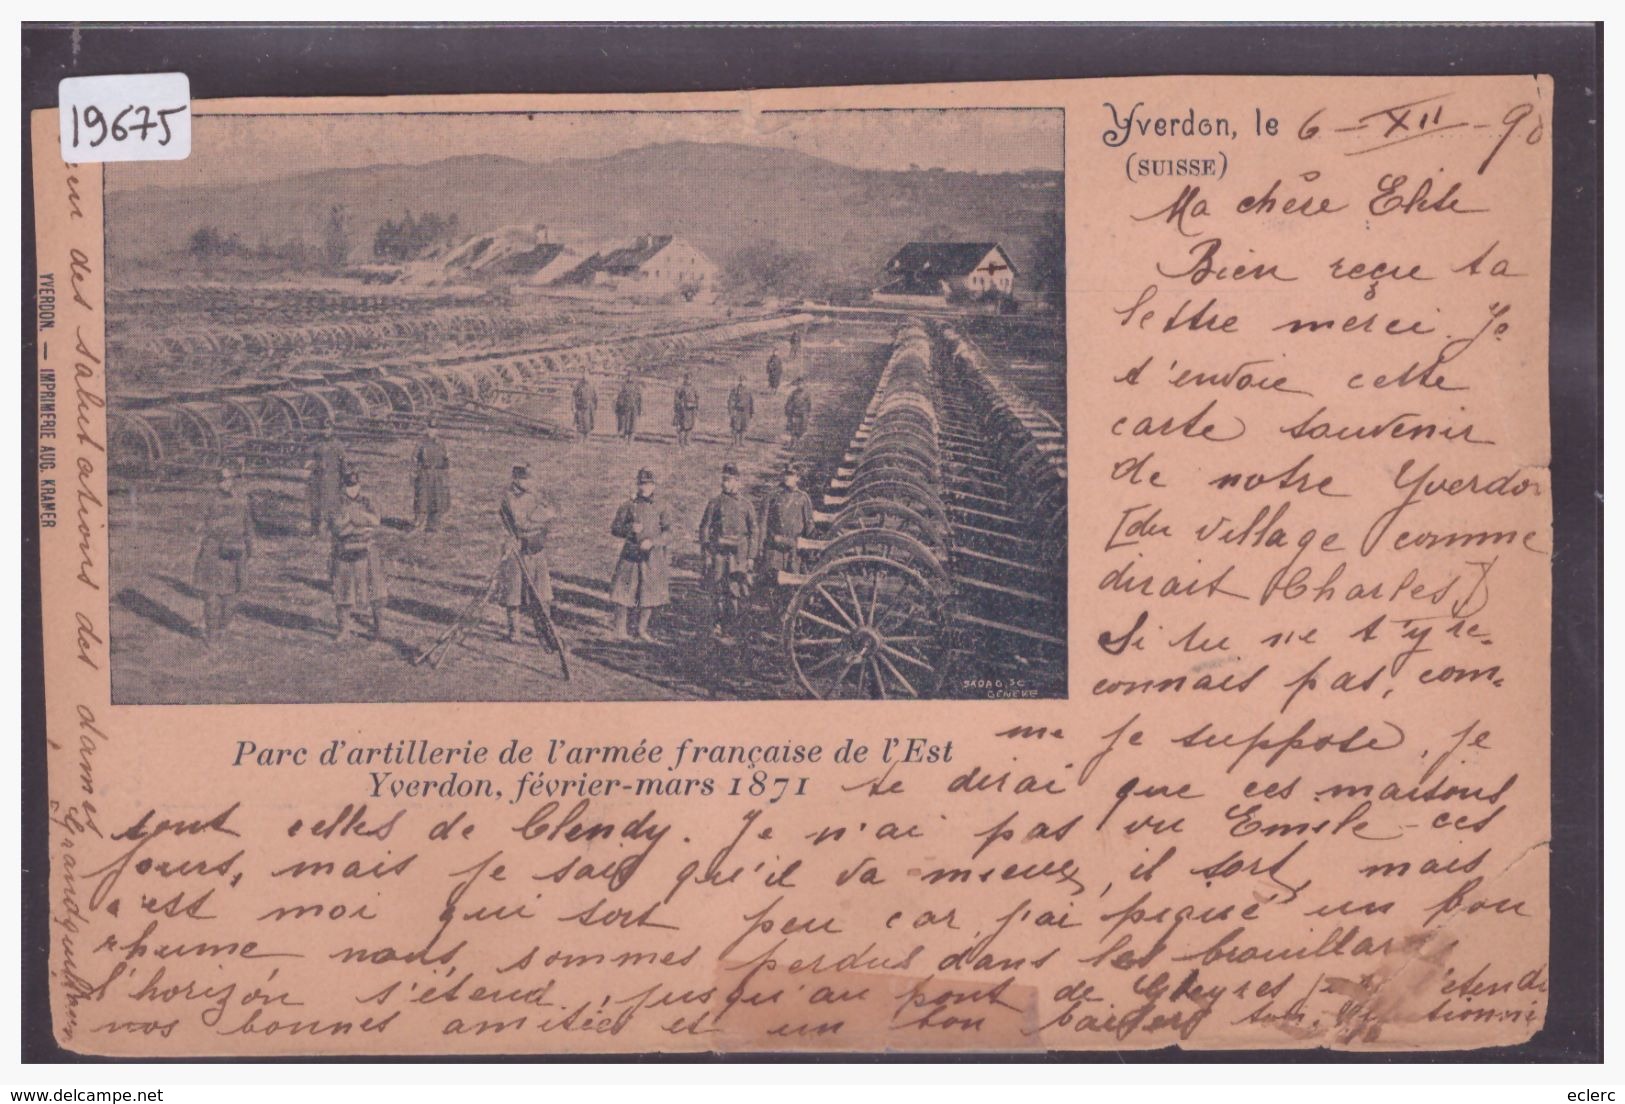 19675
Yverdon, le 6 - XII - 90
(SUISSE)
Ma chère Elise
Bien reçue ta
lettre merci. Je
t'envoie cette
carte souvenir
de notre Yverdon
[du village comme
dirait Charles]
Si tu ne t'y re-
connais pas, com-
me je suppose, je
te dirai que ces maisons
sont celles de Clendy. Je n'ai pas vu Emile ces
jours, mais je sais qu'il va mieux, il sort, mais
c'est moi qui sort peu car j'ai piqué un bon
rhume nous sommes perdus dans les brouillards
l'horizon s'étend jusqu'au pont de Gleyres
nos bonnes amitiés et un bon baiser ton
SADAG. SC
GENEVE
Parc d'artillerie de l'armée française de l'Est
Yverdon, février-mars 1871
YVERDON. — IMPRIMERIE AUG. KRAMER
des salutations des dames
eclerc